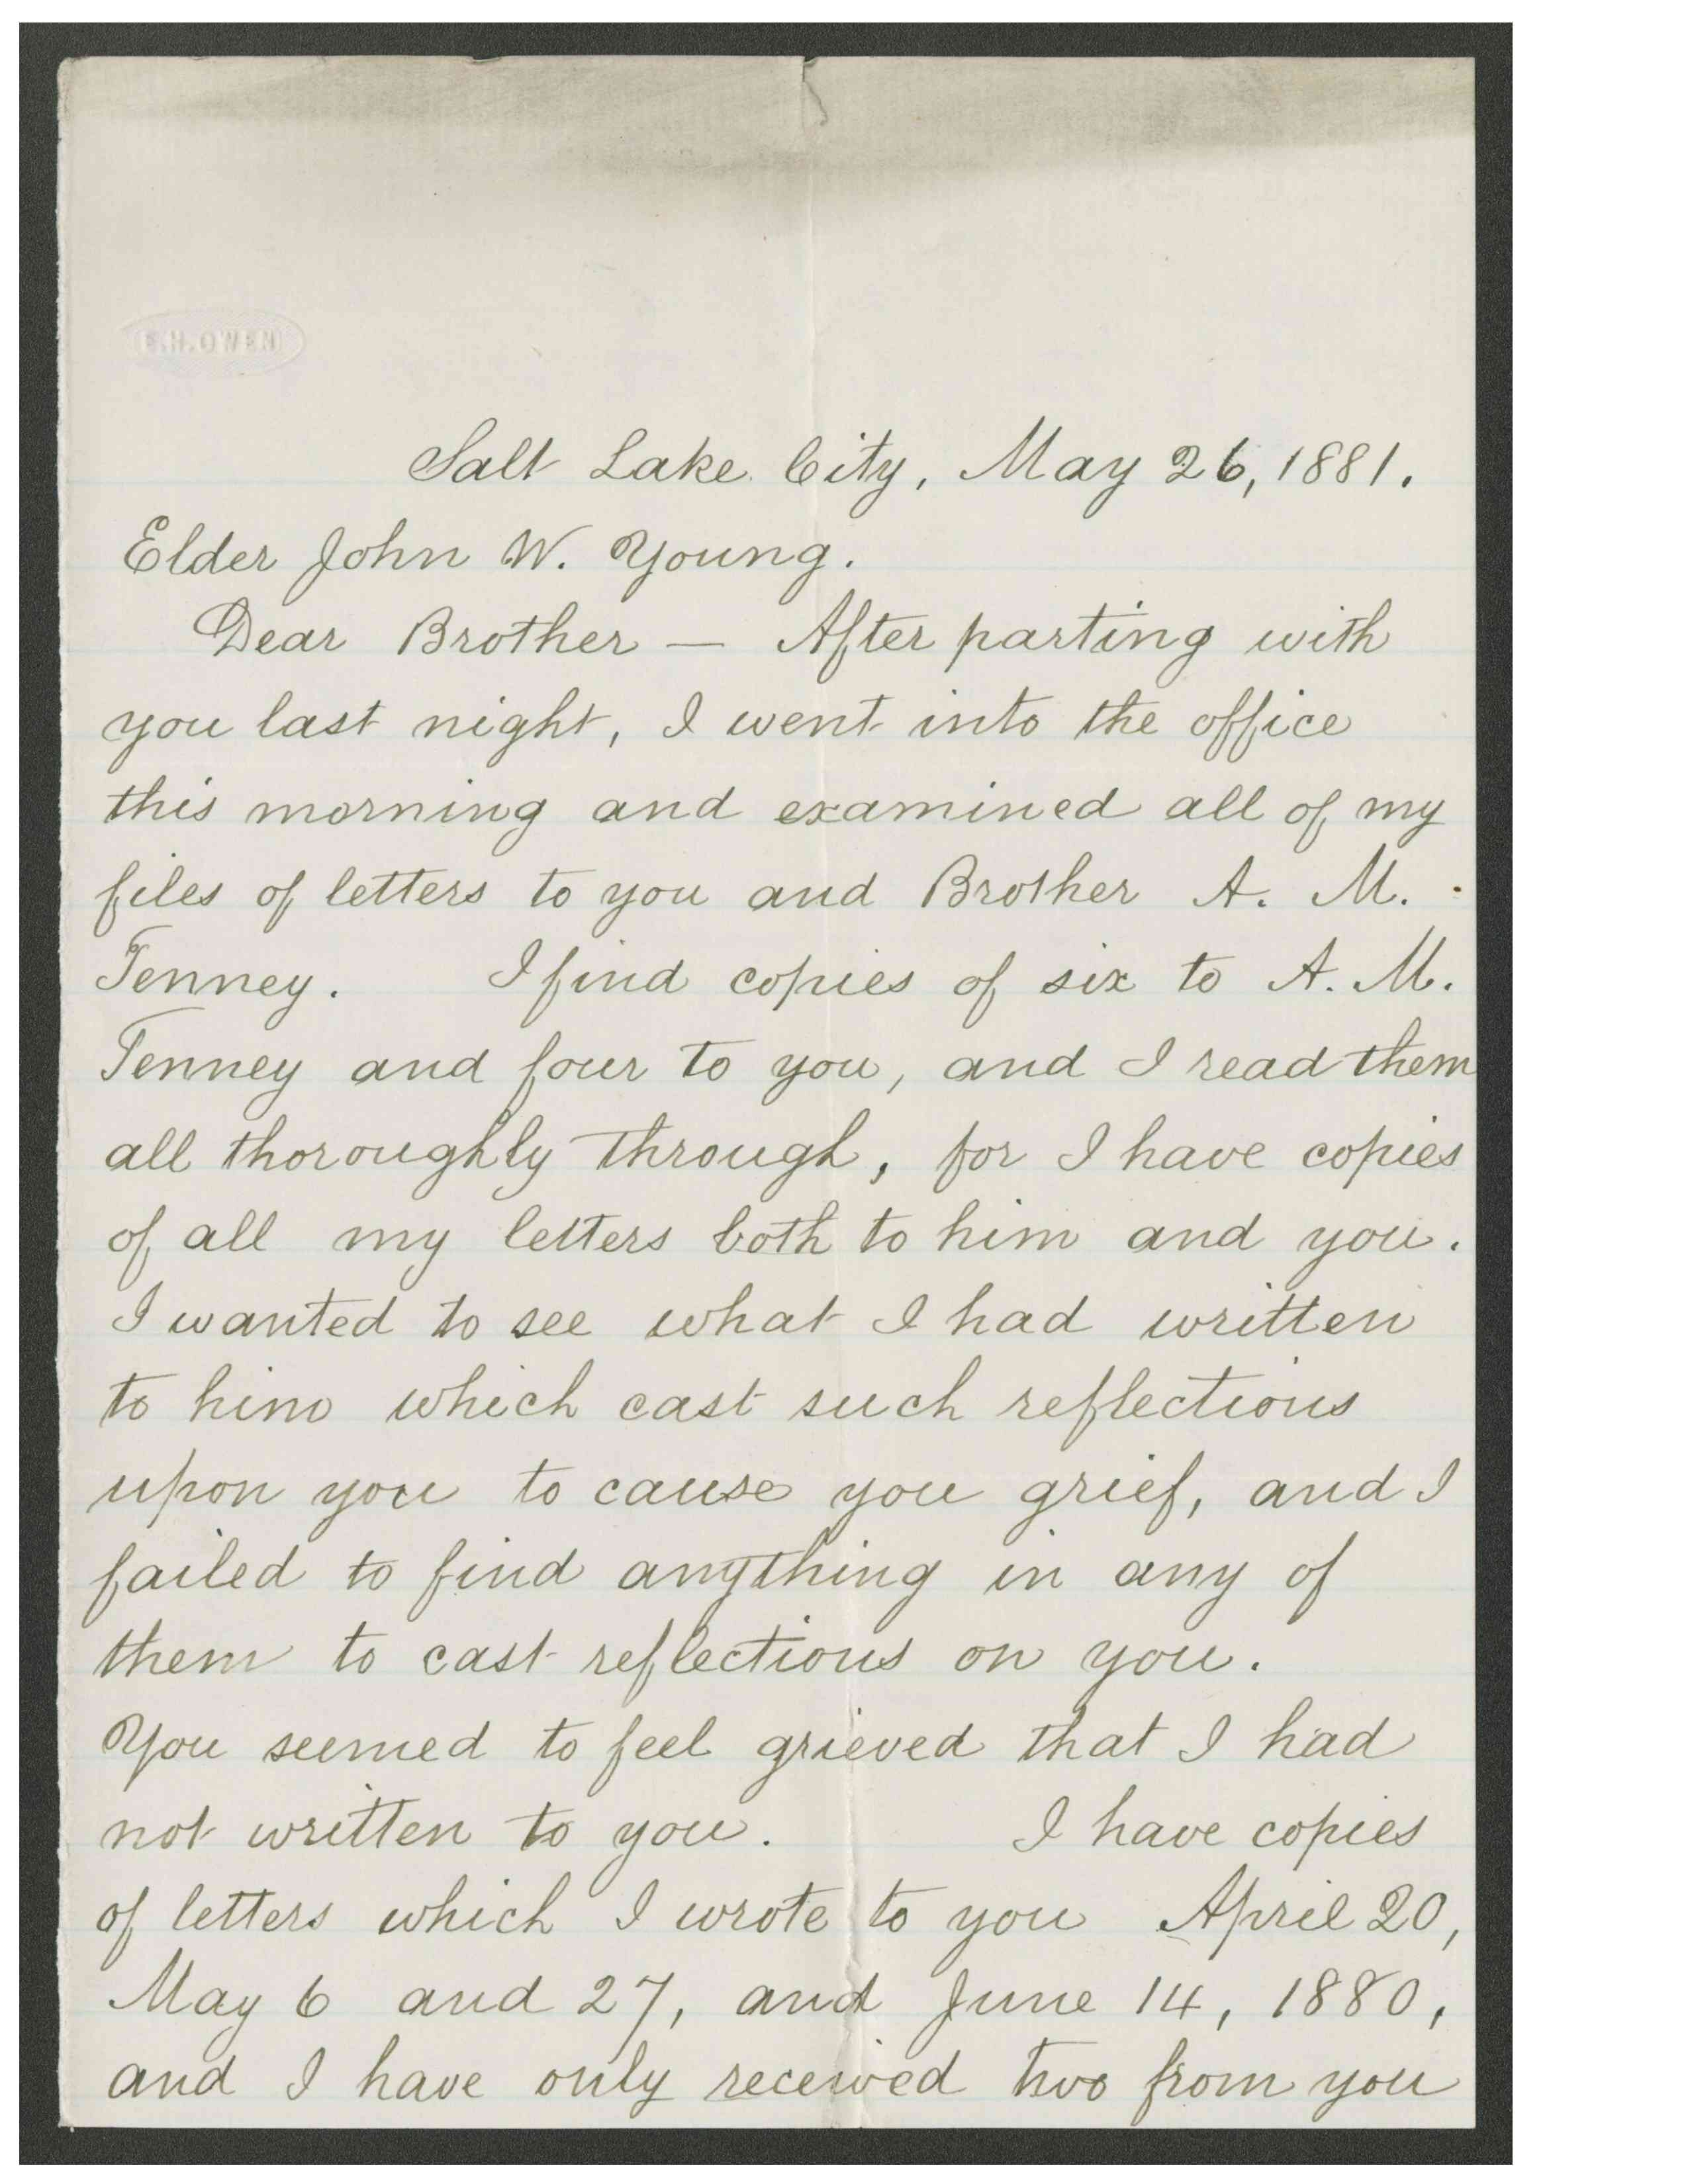 E.H.OWEN
Salt Lake City, May 26, 1881.
Elder John W. Young.
Dear Brother — After parting with
you last night, I went into the office
this morning and examined all of my
files of letters to you and Brother A. M.
Tenney. I find copies of six to A. M.
Tenney and four to you, and I read them
all thoroughly through, for I have copies
of all my letters both to him and you.
I wanted to see what I had written
to him which cast such reflections
upon you to cause you grief, and I
failed to find anything in any of
them to cast reflections on you.
You seemed to feel grieved that I had
not written to you. I have copies
of letters which I wrote to you April 20,
May 6 and 27, and June 14, 1880,
and I have only received two from you